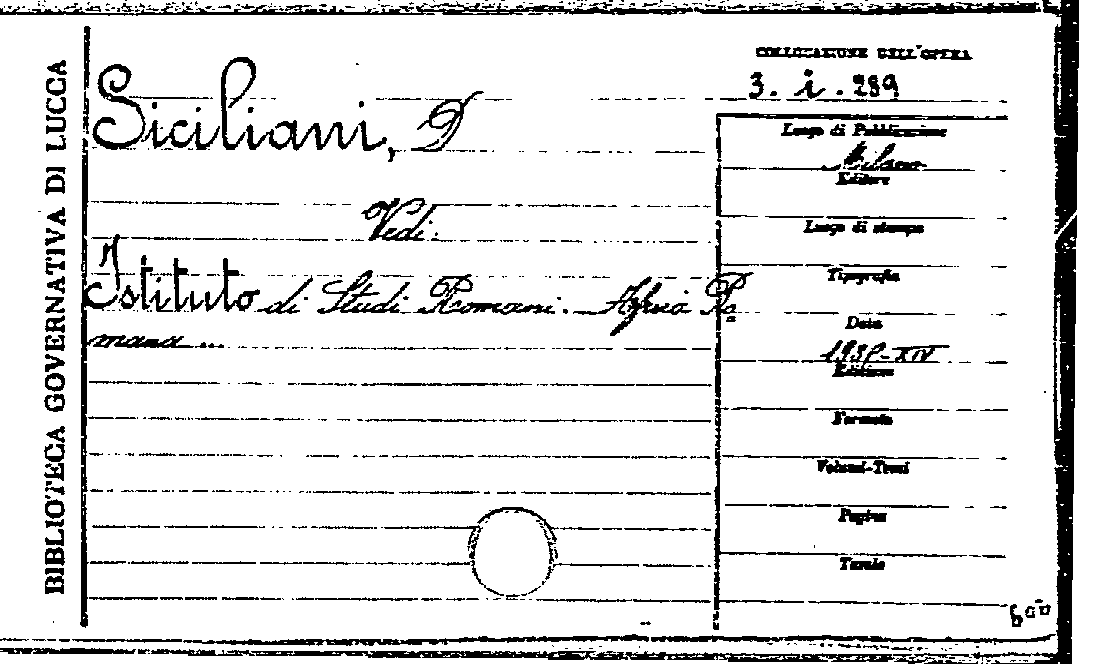 BIBLIOTECA GOVERNATIVA DI LUCCA
COLLOCAZIONE DELL'OPERA
3. i. 289
Siciliani, D
Vedi:
Istituto di Studi Romani. Africa Ro
mana ...
Luogo di Pubblicazione
Milano
Editore
Luogo di stampa
Tipografia
Data
Edizione
Formato
Volumi-Tomi
Pagine
Tavole